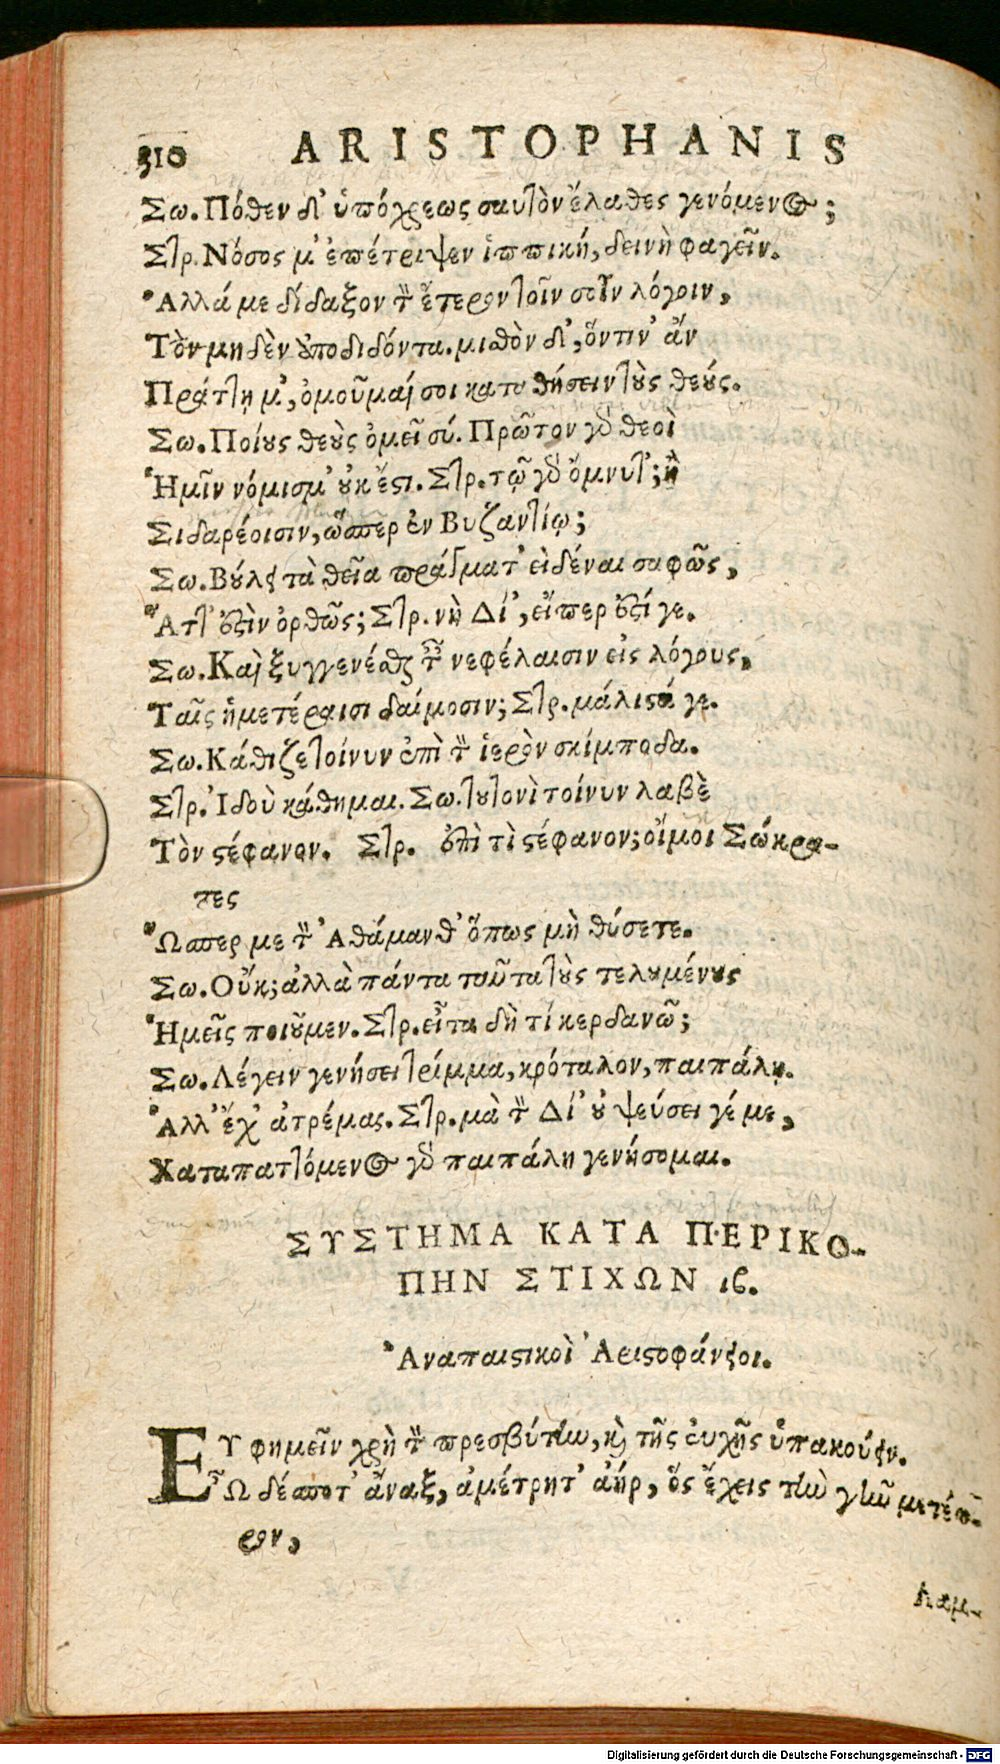 310 ARISTOPHANIS
Σω. Πόθεν δ' ὑπόχρεως σαυτὸν ἔλαθες γενόμενος;
Στρ. Νόσος μ' ἐπέτριψεν ἱππική, δεινὴ φαγεῖν.
Ἀλλά με δίδαξον τὸν ἕτερον τοῖν σοῖν λόγοιν,
Τὸν μηδὲν ἀποδιδόντα. μιθὸν δ', ὅντιν' ἄν
Πράττῃ μ', ὀμοῦμαί σοι καταθήσειν τοὺς θεούς.
Σω. Ποίους θεοὺς ὀμεῖ σύ. Πρῶτον γὸ θεοὶ
Ἡμῖν νόμισμ' οὐκ ἔστι. Στρ. τῷ γὸ ὄμνυτ'; ἢ
Σιδαρέοισιν, ὥσπερ ἐν Βυζαντίῳ;
Σω. Βούλει τὰ θεῖα πράγματ' εἰδέναι σαφῶς,
Ἅττ' ἐστὶν ὀρθῶς; Στρ. νὴ Δί', εἴπερ ἐστί γε.
Σω. Καὶ ξυγγενέσθαι ταῖς νεφέλαισιν εἰς λόγους,
Ταῖς ἡμετέραισι δαίμοσιν; Στρ. μάλιστά γε.
Σω. Κάθιζε τοίνυν ἐπὶ τὸν ἱερὸν σκίμποδα.
Στρ. Ἰδοὺ κάθημαι. Σω. τουτονὶ τοίνυν λαβὲ
Τὸν στέφανον. Στρ. ἐπὶ τὶ στέφανον; οἴμοι Σώκρα-
τες
Ὥσπερ με τὸν Ἀθάμανθ' ὅπως μὴ θύσετε.
Σω. Οὔκ; ἀλλὰ πάντα ταῦτα τοὺς τελουμένους
Ἡμεῖς ποιοῦμεν. Στρ. εἶτα δὴ τί κερδανῶ;
Σω. Λέγειν γενήσει τρίμμα, κρόταλον, παιπάλη.
Ἀλλ' ἔχ' ἀτρέμας. Στρ. μὰ τὸν Δί' οὐ ψεύσει γέ με,
Καταπαττόμενος γὸ παιπάλη γενήσομαι.
ΣΥΣΤΗΜΑ ΚΑΤΑ ΠΕΡΙΚΟ-
ΠΗΝ ΣΤΙΧΩΝ ις.
Ἀναπαιστικοὶ Ἀριστοφάνειοι.
ΕΥφημεῖν χρὴ τὸν πρεσβύτην, καὶ τῆς εὐχῆς ὑπακούειν.
Ὦ δέσποτ' ἄναξ, ἀμέτρητ' ἀήρ, ὃς ἔχεις τὴν γῆν μετέω-
ρον,
Λαμ-
Digitalisierung gefördert durch die Deutsche Forschungsgemeinschaft - DFG